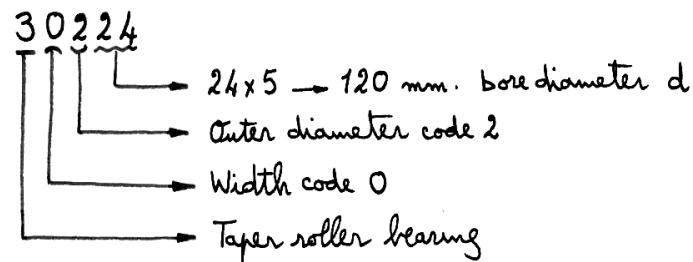 30224
24x5 → 120 mm. bore diameter d
Outer diameter code 2
Width code 0
Taper roller bearing